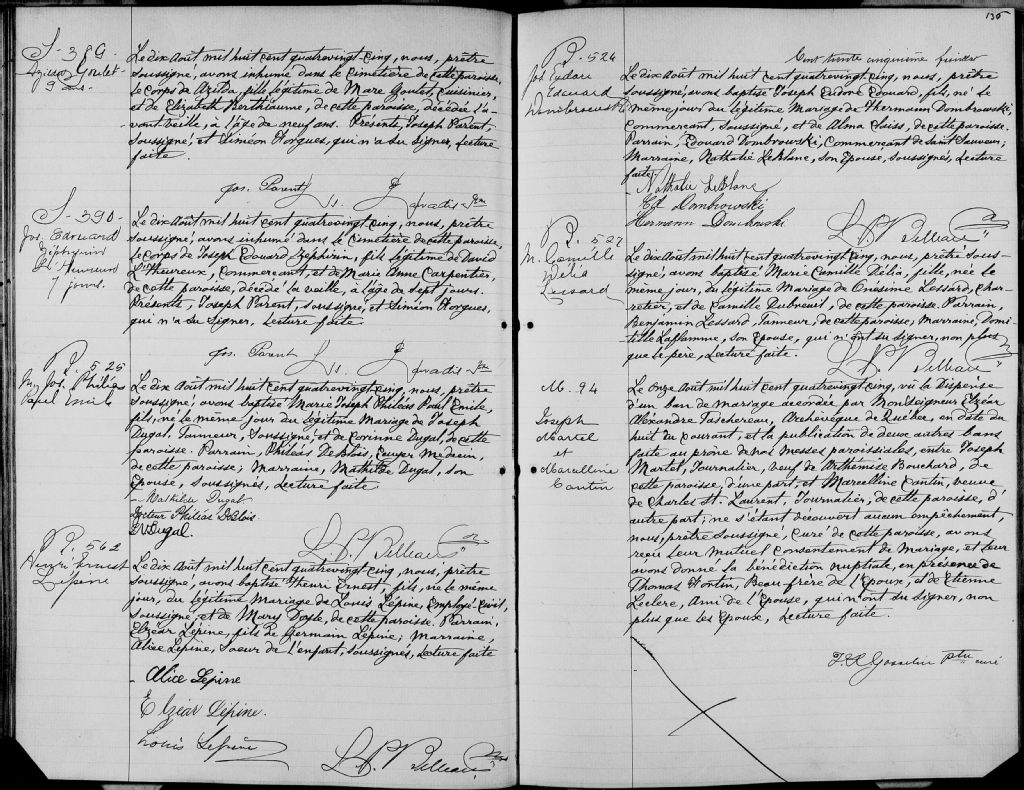 S - 389.
Goulet
9 ans.
Le dix Août mil huit cent quatrevingt-cinq, nous, prêtre
soussigné, avons inhumé dans le cimetière de cette paroisse,
le corps de Azilda, fille légitime de Marc Goulet, Cuisinier,
et de Elizabeth Berthiaume, de cette paroisse, décédée l'a-
vant veille, à l'âge de neuf ans. Présents, Joseph Parent,
soussigné, et Siméon Gorgues, qui n'a su signer, Lecture
faite.
Jos. Parent
S - 390 -
Jos. Edouard
Zéphirin
L'Heureux
7 jours.
Le dix Août mil huit cent quatrevingt-cinq, nous, prêtre
soussigné, avons inhumé dans le cimetière de cette paroisse,
le corps de Joseph Edouard Zéphirin, fils légitime de David
L'heureux, Commerçant, et de Marie Anne Carpentier,
de cette paroisse, décédé la veille, à l'âge de sept jours.
Présents, Joseph Parent, soussigné, et Siméon Gorgues,
qui n'a su signer, Lecture faite.
Jos. Parent
B. 525
M. Jos. Philéas
Paul Emile
Le dix Août mil huit cent quatrevingt-cinq, nous, prêtre
soussigné, avons baptisé Marie Joseph Philéas Paul Emile,
fils, né le même jour du légitime Mariage de Joseph
Dugal, Tanneur, soussigné et de Corinne Dugal, de cette
paroisse. Parrain, Philéas DeBlois, Médecin,
de cette paroisse; Marraine, Mathilde Dugal, son
Epouse, soussignés, Lecture faite
Mathilde Dugal
Philéas DeBlois
Dugal
B. 562
Henri Ernest
Lépine
Le dix Août mil huit cent quatrevingt cinq, nous, prêtre
soussigné, avons baptisé Henri Ernest, fils, né le même
jour, du légitime Mariage de Louis Lépine, Employé Civil,
soussigné, et de Mary Doyle, de cette paroisse. Parrain,
Elzéar Lépine, fils de Germain Lépine; Marraine,
Alice Lépine, Soeur de l'enfant, soussignés, Lecture faite
Alice Lépine
Elzéar Lépine.
Louis Lépine
135
Cent trente cinquième feuillet
B. 524
Edouard
Dombrowski
Le dix Août mil huit cent quatrevingt-cinq, nous, prêtre
soussigné, avons baptisé Joseph Eudore Edouard, fils, né le
même jour du légitime Mariage de Hermann Dombrowski,
Commerçant, soussigné, et de Alma Suiss, de cette paroisse.
Parrain, Edouard Dombrowski, Commerçant de Saint Sauveur;
Marraine, Nathalie LeBlanc, son Epouse, soussignés, Lecture
faite
Nathalie LeBlanc
Ed. Dombrowski
Hermann Dombrowski
B. 527
M. Camille
Délia
Lessard
Le dix Août mil huit cent quatrevingt-cinq, nous, prêtre sous-
signé, avons baptisé Marie Camille Délia, fille, née le
même jour, du légitime Mariage de Onésime Lessard, Char-
retier, et de Camille Dubneuil, de cette paroisse. Parrain,
Benjamin Lessard, Tanneur, de cette paroisse; Marraine, Domi-
tille Laflamme, son Epouse, qui n'ont su signer, non plus
que le père, Lecture faite.
M. 94
Joseph
Martel
et
Marcelline
Cantin
Le Onze Août mil huit cent quatrevingt-cinq, vû la dispense
d'un ban de mariage accordée par Monseigneur Elzéar
Alexandre Taschereau, Archevêque de Québec, en date du
huit du courant, et la publication de deux autres bans
faite au prône de nos Messes paroissiales, entre Joseph
Martel, Journalier, veuf de Arthémise Bouchard, de
cette paroisse, d'une part, et Marcelline Cantin, veuve
de Charles St. Laurent, Journalier, de cette paroisse, d'
autre part; ne s'étant découvert aucun empêchement,
nous, prêtre soussigné, Curé de cette paroisse, avons
reçu leur mutuel consentement de Mariage, et leur
avons donné la bénédiction nuptiale, en présence de
Thomas Fortin, Beau frère de l'Epoux, et de Etienne
Leclerc, Ami de l'Epouse, qui n'ont su signer, non
plus que les Epoux, Lecture faite.
Gosselin Ptre curé